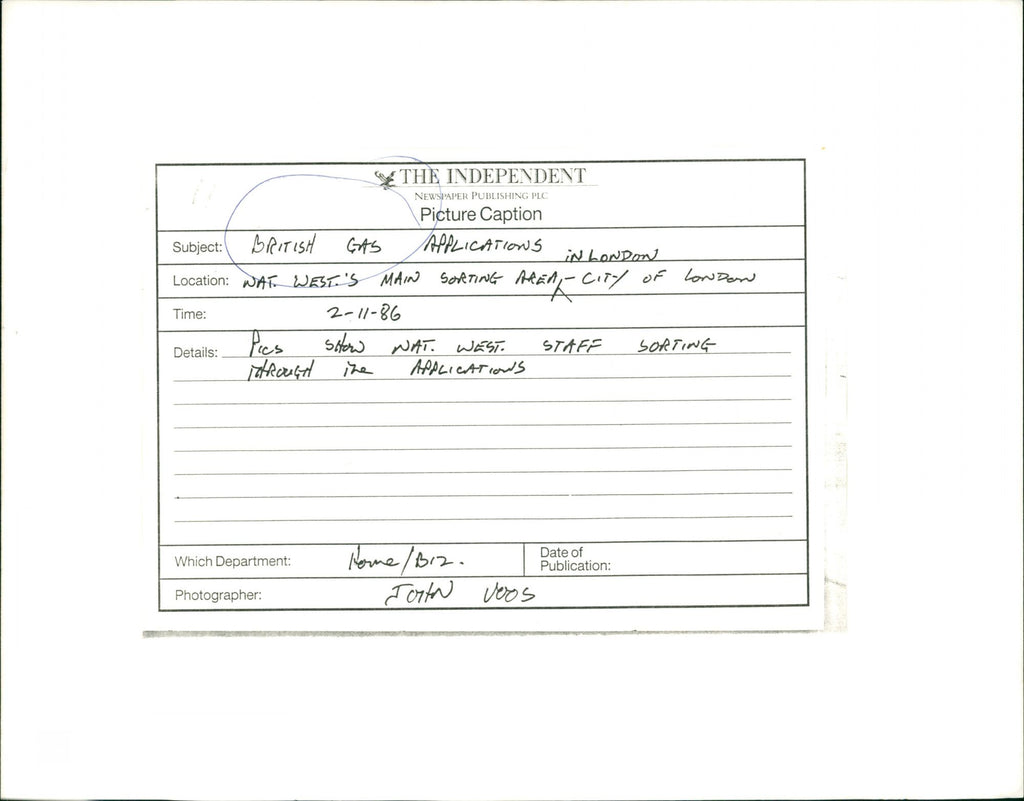 THE INDEPENDENT
NEWSPAPER PUBLISHING PLC
Picture Caption
Subject: BRITISH GAS APPLICATIONS
IN LONDON
Location: NAT. WEST.'S MAIN SORTING AREA, - CITY OF LONDON
Time: 2-11-86
Details: PICS SHOW NAT. WEST. STAFF SORTING
THROUGH THE APPLICATIONS
Which Department: Home/BIZ.
Date of
Publication:
Photographer: JOHN VOOS